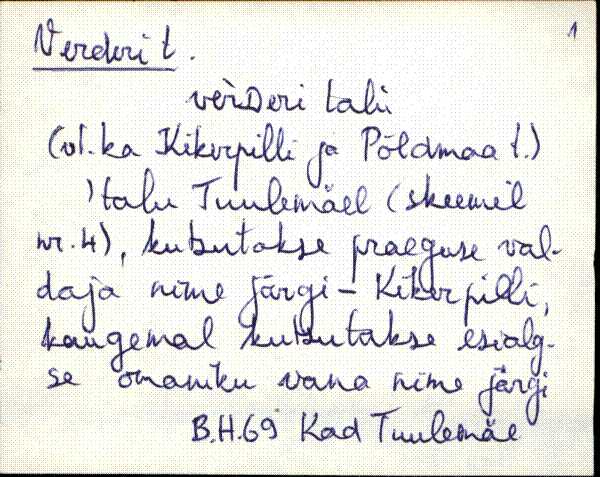 1
Verderi t.
vèrDeri talu
(vt. ka Kikerpilli ja Põldmaa t.)
) talu Tuulemäel (skeemil
nr. 4), kutsutakse praeguse val-
daja nime järgi – Kikerpilli,
kaugemal kutsutakse esialg-
se omaniku vana nime järgi
B.H.69 Kad Tuulemäe